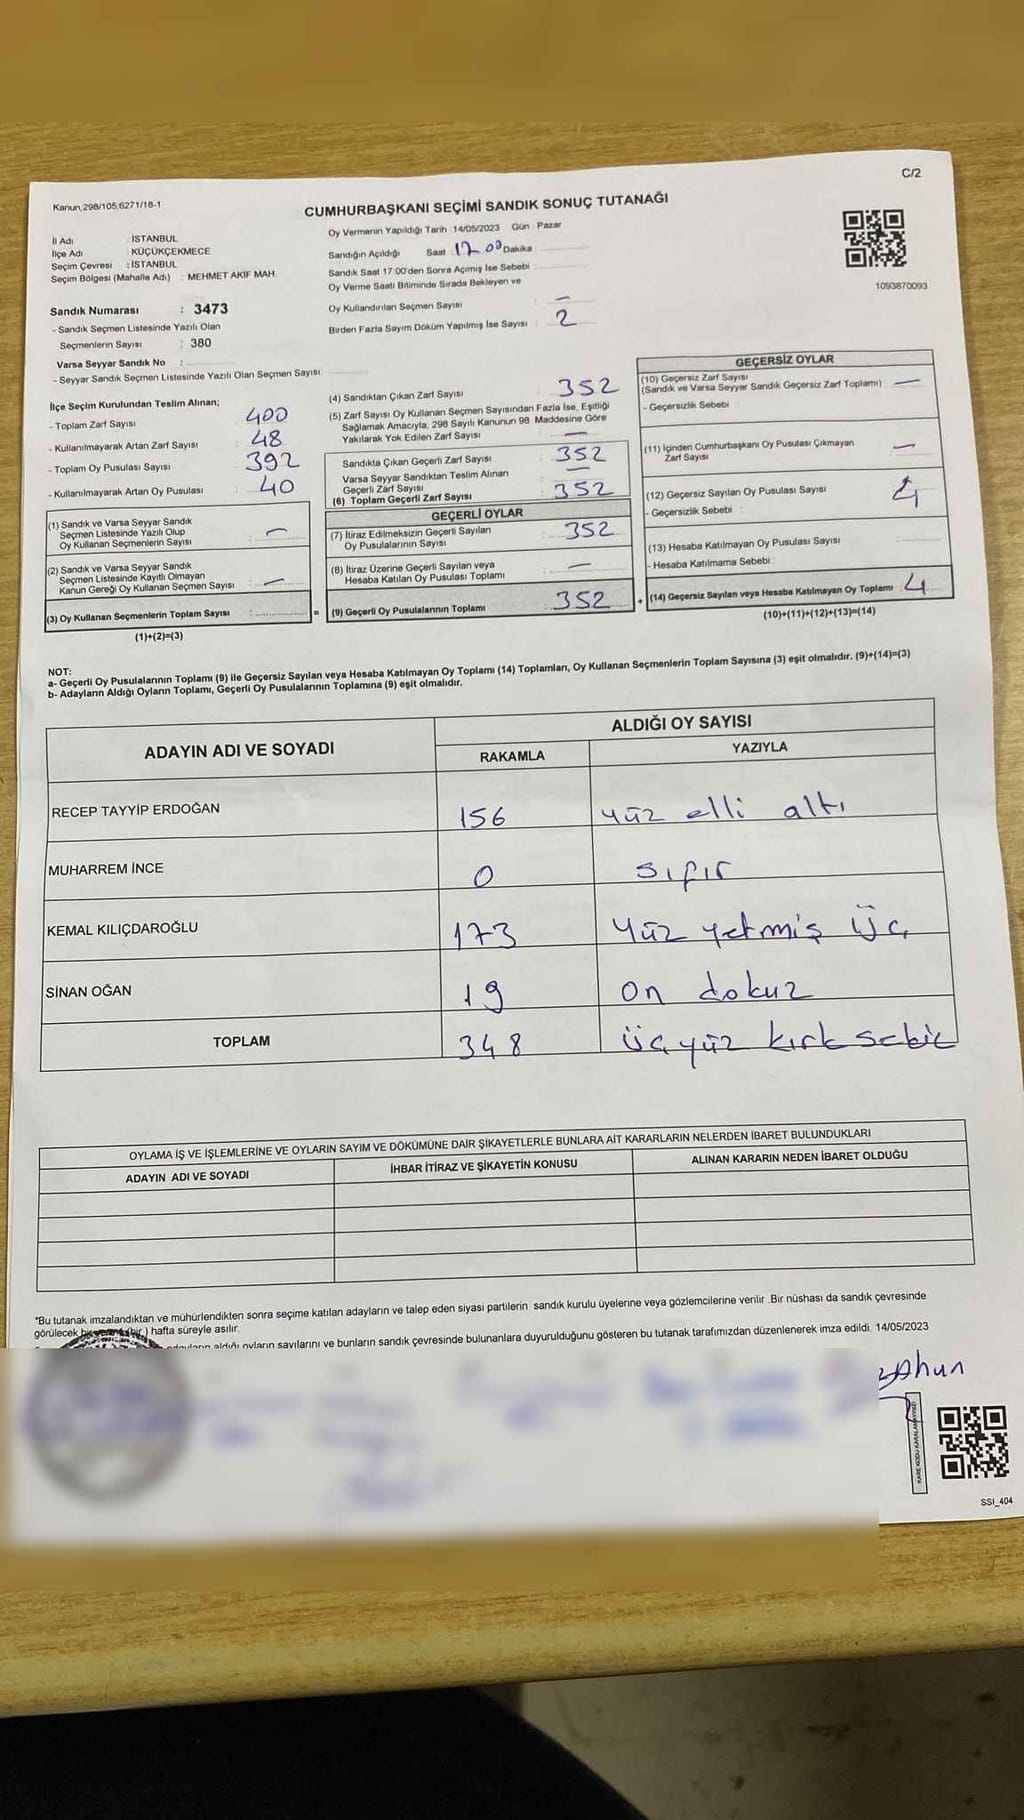 C/2
Kanun,298/105,6271/18-1
CUMHURBAŞKANI SEÇİMİ SANDIK SONUÇ TUTANAĞI
İl Adı İSTANBUL
İlçe Adı KÜÇÜKÇEKMECE
Seçim Çevresi : İSTANBUL
Seçim Bölgesi (Mahalle Adı) : MEHMET AKİF MAH.
Oy Vermenin Yapıldığı Tarih : 14/05/2023 Gün : Pazar
Sandığın Açıldığı Saat 17 00 Dakika :
Sandık Saat 17:00'den Sonra Açımış İse Sebebi
Oy Verme Saati Bitiminde Sırada Bekleyen ve
Oy Kullandırılan Seçmen Sayısı : —
Birden Fazla Sayım Döküm Yapılmış İse Sayısı : 2
1093870093
Sandık Numarası : 3473
- Sandık Seçmen Listesinde Yazılı Olan
Seçmenlerin Sayısı : 380
Varsa Seyyar Sandık No :
- Seyyar Sandık Seçmen Listesinde Yazılı Olan Seçmen Sayısı:
İlçe Seçim Kurulundan Teslim Alınan;
- Toplam Zarf Sayısı 400
- Kullanılmayarak Artan Zarf Sayısı 48
- Toplam Oy Pusulası Sayısı 392
- Kullanılmayarak Artan Oy Pusulası : 40
(1) Sandık ve Varsa Seyyar Sandık
Seçmen Listesinde Yazılı Olup
Oy Kullanan Seçmenlerin Sayısı : —
(2) Sandık ve Varsa Seyyar Sandık
Seçmen Listesinde Kayıtlı Olmayan
Kanun Gereği Oy Kullanan Seçmen Sayısı : —
(3) Oy Kullanan Seçmenlerin Toplam Sayısı : =
(1)+(2)=(3)
(4) Sandıktan Çıkan Zarf Sayısı : 352
(5) Zarf Sayısı Oy Kullanan Seçmen Sayısından Fazla İse, Eşitliği
Sağlamak Amacıyla, 298 Sayılı Kanunun 98. Maddesine Göre
Yakılarak Yok Edilen Zarf Sayısı : —
Sandıkta Çıkan Geçerli Zarf Sayısı : 352
Varsa Seyyar Sandıktan Teslim Alınan
Geçerli Zarf Sayısı : —
(6) Toplam Geçerli Zarf Sayısı : 352
GEÇERLİ OYLAR
(7) İtiraz Edilmeksizin Geçerli Sayılan
Oy Pusulalarının Sayısı : 352
(8) İtiraz Üzerine Geçerli Sayılan veya
Hesaba Katılan Oy Pusulası Toplamı : —
(9) Geçerli Oy Pusulalarının Toplamı : 352 +
GEÇERSİZ OYLAR
(10) Geçersiz Zarf Sayısı
(Sandık ve Varsa Seyyar Sandık Geçersiz Zarf Toplamı) : —
- Geçersizlik Sebebi :
(11) İçinden Cumhurbaşkanı Oy Pusulası Çıkmayan
Zarf Sayısı : —
(12) Geçersiz Sayılan Oy Pusulası Sayısı : 4
- Geçersizlik Sebebi :
(13) Hesaba Katılmayan Oy Pusulası Sayısı :
- Hesaba Katılmama Sebebi :
(14) Geçersiz Sayılan veya Hesaba Katılmayan Oy Toplamı 4
(10)+(11)+(12)+(13)=(14)
NOT:
a- Geçerli Oy Pusulalarının Toplamı (9) ile Geçersiz Sayılan veya Hesaba Katılmayan Oy Toplamı (14) Toplamları, Oy Kullanan Seçmenlerin Toplam Sayısına (3) eşit olmalıdır. (9)+(14)=(3)
b- Adayların Aldığı Oyların Toplamı, Geçerli Oy Pusulalarının Toplamına (9) eşit olmalıdır.
ADAYIN ADI VE SOYADI ALDIĞI OY SAYISI
RAKAMLA YAZIYLA
RECEP TAYYİP ERDOĞAN 156 yüz elli altı
MUHARREM İNCE 0 sıfır
KEMAL KILIÇDAROĞLU 173 yüz yetmiş üç
SİNAN OĞAN 19 on dokuz
TOPLAM 348 üçyüz kırk sekiz
OYLAMA İŞ VE İŞLEMLERİNE VE OYLARIN SAYIM VE DÖKÜMÜNE DAİR ŞİKAYETLERLE BUNLARA AİT KARARLARIN NELERDEN İBARET BULUNDUKLARI
ADAYIN ADI VE SOYADI İHBAR İTİRAZ VE ŞİKAYETİN KONUSU ALINAN KARARIN NEDEN İBARET OLDUĞU
*Bu tutanak imzalandıktan ve mühürlendikten sonra seçime katılan adayların ve talep eden siyasi partilerin sandık kurulu üyelerine veya gözlemcilerine verilir .Bir nüshası da sandık çevresinde
görülecek bir (bir ) hafta süreyle asılır.
aldığı oyların sayılarını ve bunların sandık çevresinde bulunanlara duyurulduğunu gösteren bu tutanak tarafımızdan düzenlenerek imza edildi. 14/05/2023
SSI_404